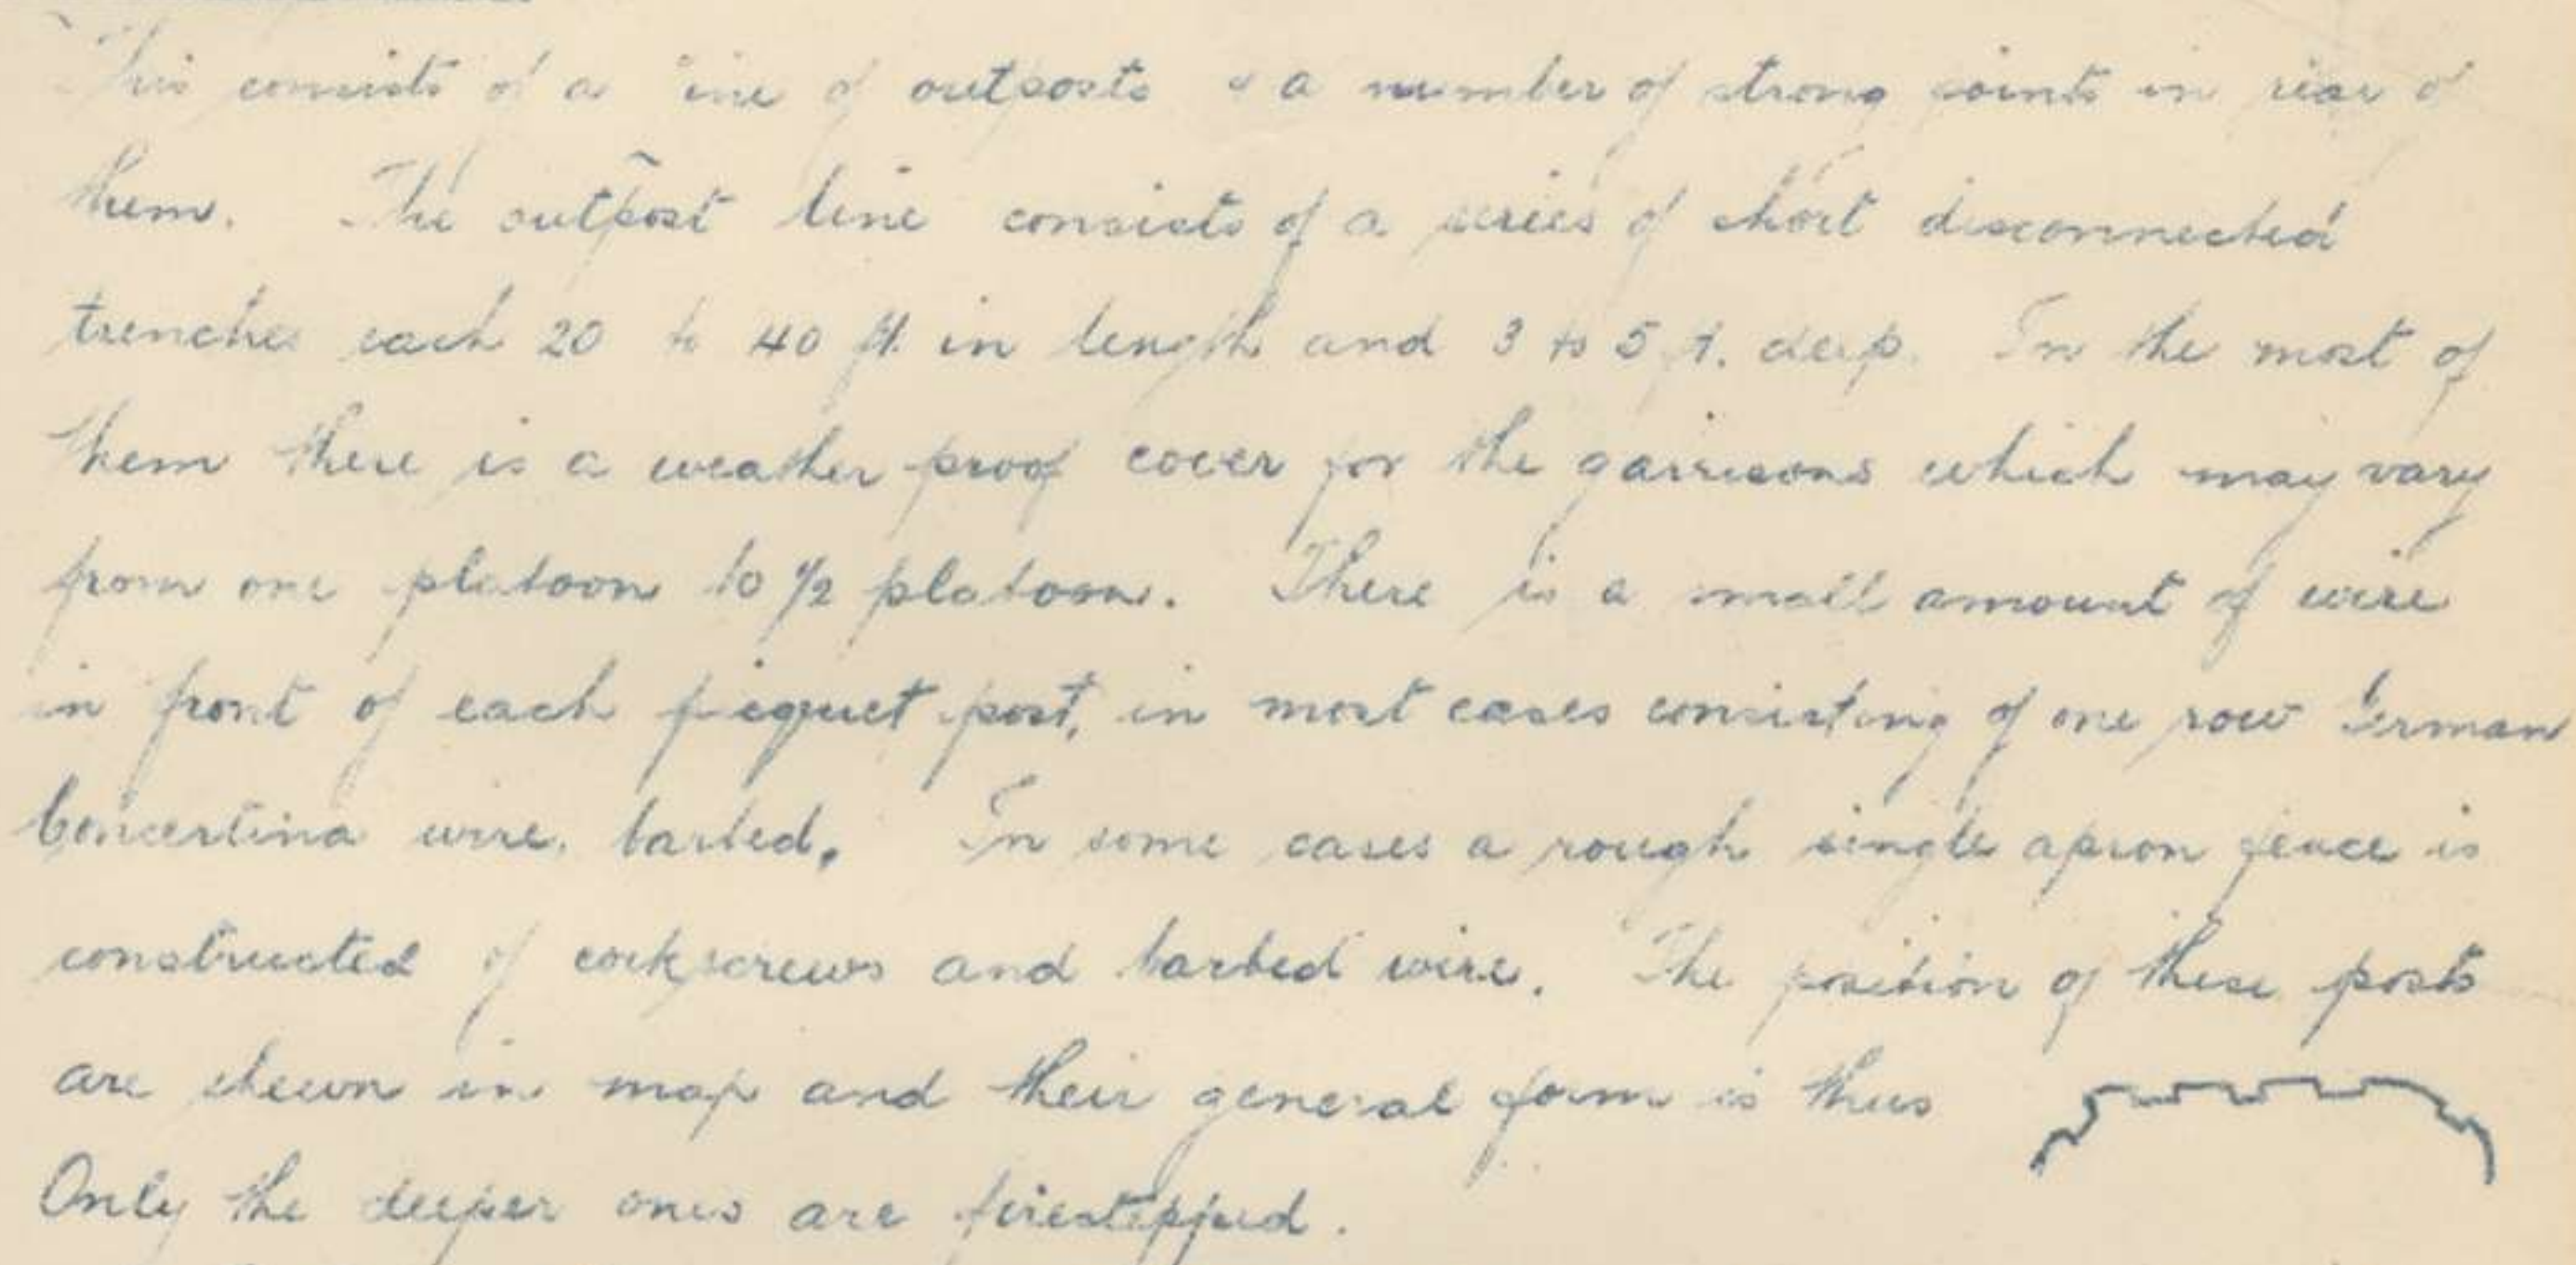 This consists of a line of outposts & a number of strong points in rear of
them. The outpost line consists of a series of short disconnected
trenches each 20 to 40 ft. in length and 3 to 5 ft. deep. In the most of
them there is a weather proof cover for the garrisons which may vary
from one platoon to 1/2 platoon. There is a small amount of wire
in front of each piquet post, in most cases consisting of one row German
Concertina wire, barbed. In some cases a rough single apron fence is
constructed of corkscrews and barbed wire. The position of these posts
are shewn in map and their general form is thus
Only the deeper ones are firestepped.